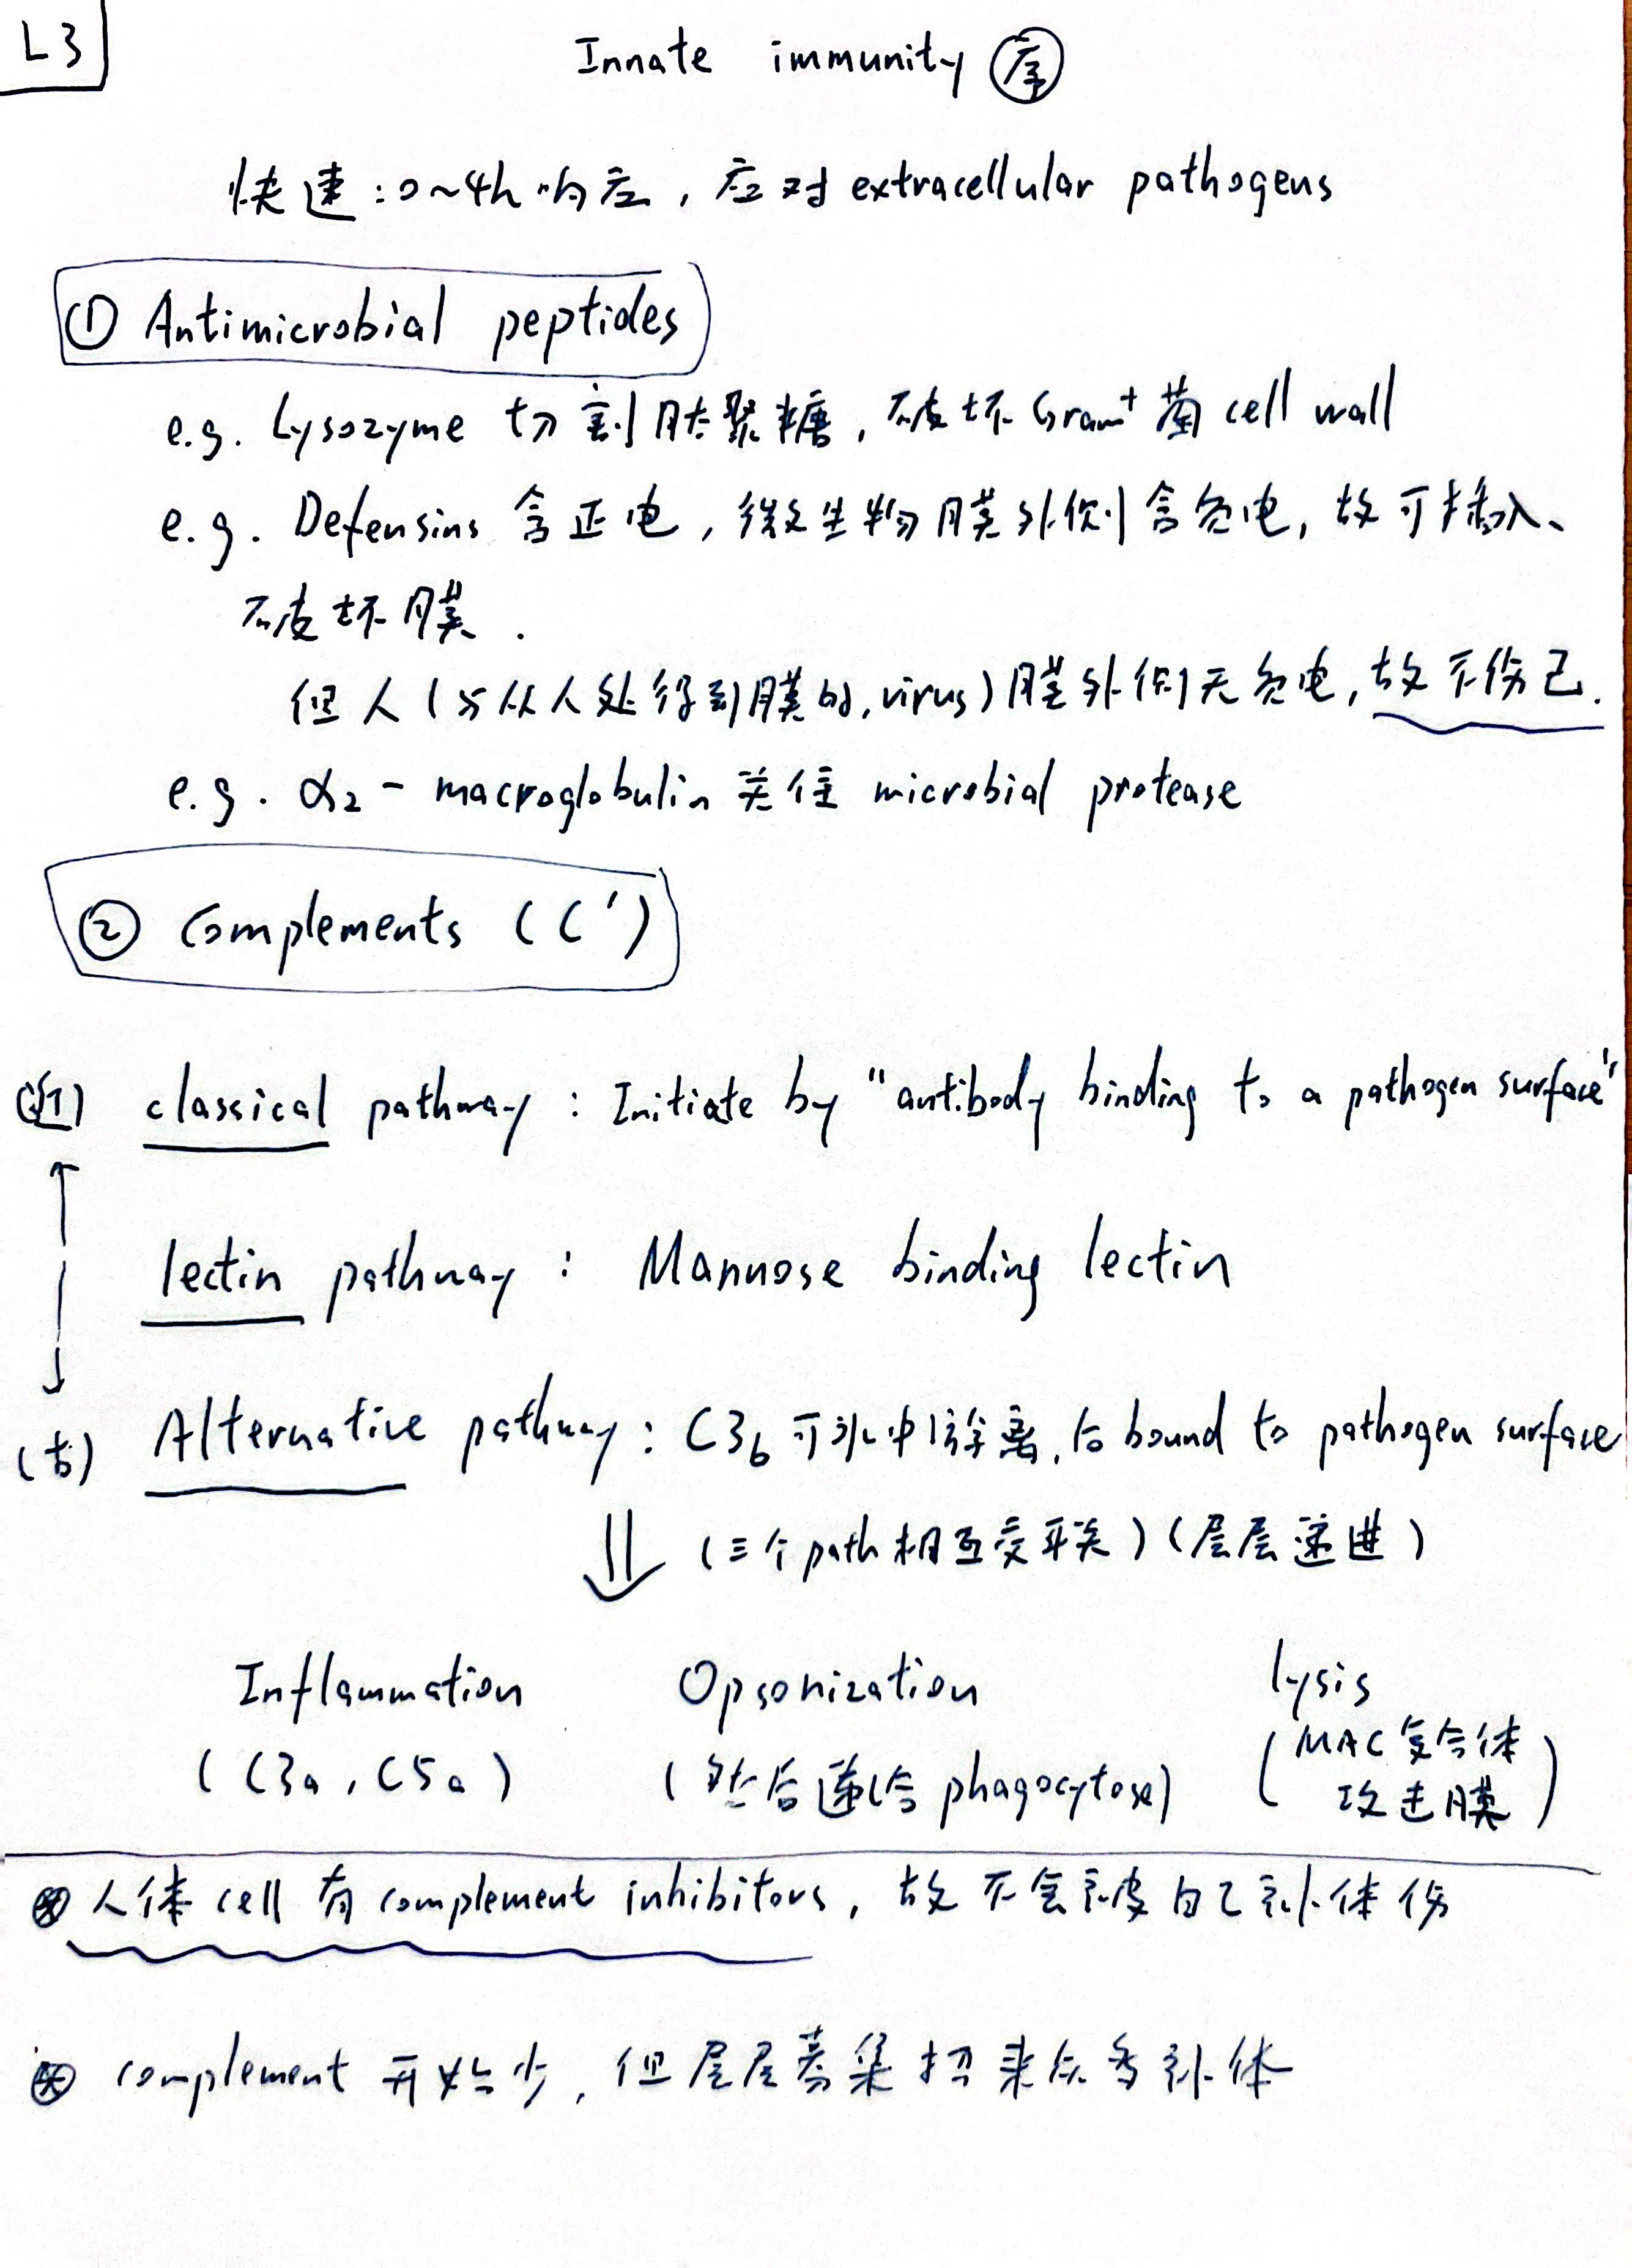 L3
Innate immunity 序
快速:0~4h响应,应对 extracellular pathogens
① Antimicrobial peptides
e.g. Lysozyme 切割肽聚糖,破坏 Gram⁺ 菌 cell wall
e.g. Defensins 含正电,微生物膜外侧含负电,故可插入、
破坏膜.
但人(与从人处得到膜的,virus)膜外侧无负电,故不伤己.
e.g. α₂ - macroglobulin 关住 microbial protease
② Complements (C')
(近) classical pathway : Initiate by "antibody binding to a pathogen surface"
lectin pathway : Mannose binding lectin
(古) Alternative pathway : C3b 可水中游离,后 bound to pathogen surface
(三个path相互交联)(层层递进)
Inflammation Opsonization lysis
(C3a, C5a) (然后适合 phagocytose) (MAC复合体
攻击膜)
⊗ 人体 cell 有 complement inhibitors, 故不会被自己补体伤
⊗ complement 开始少, 但层层募集招来众多补体